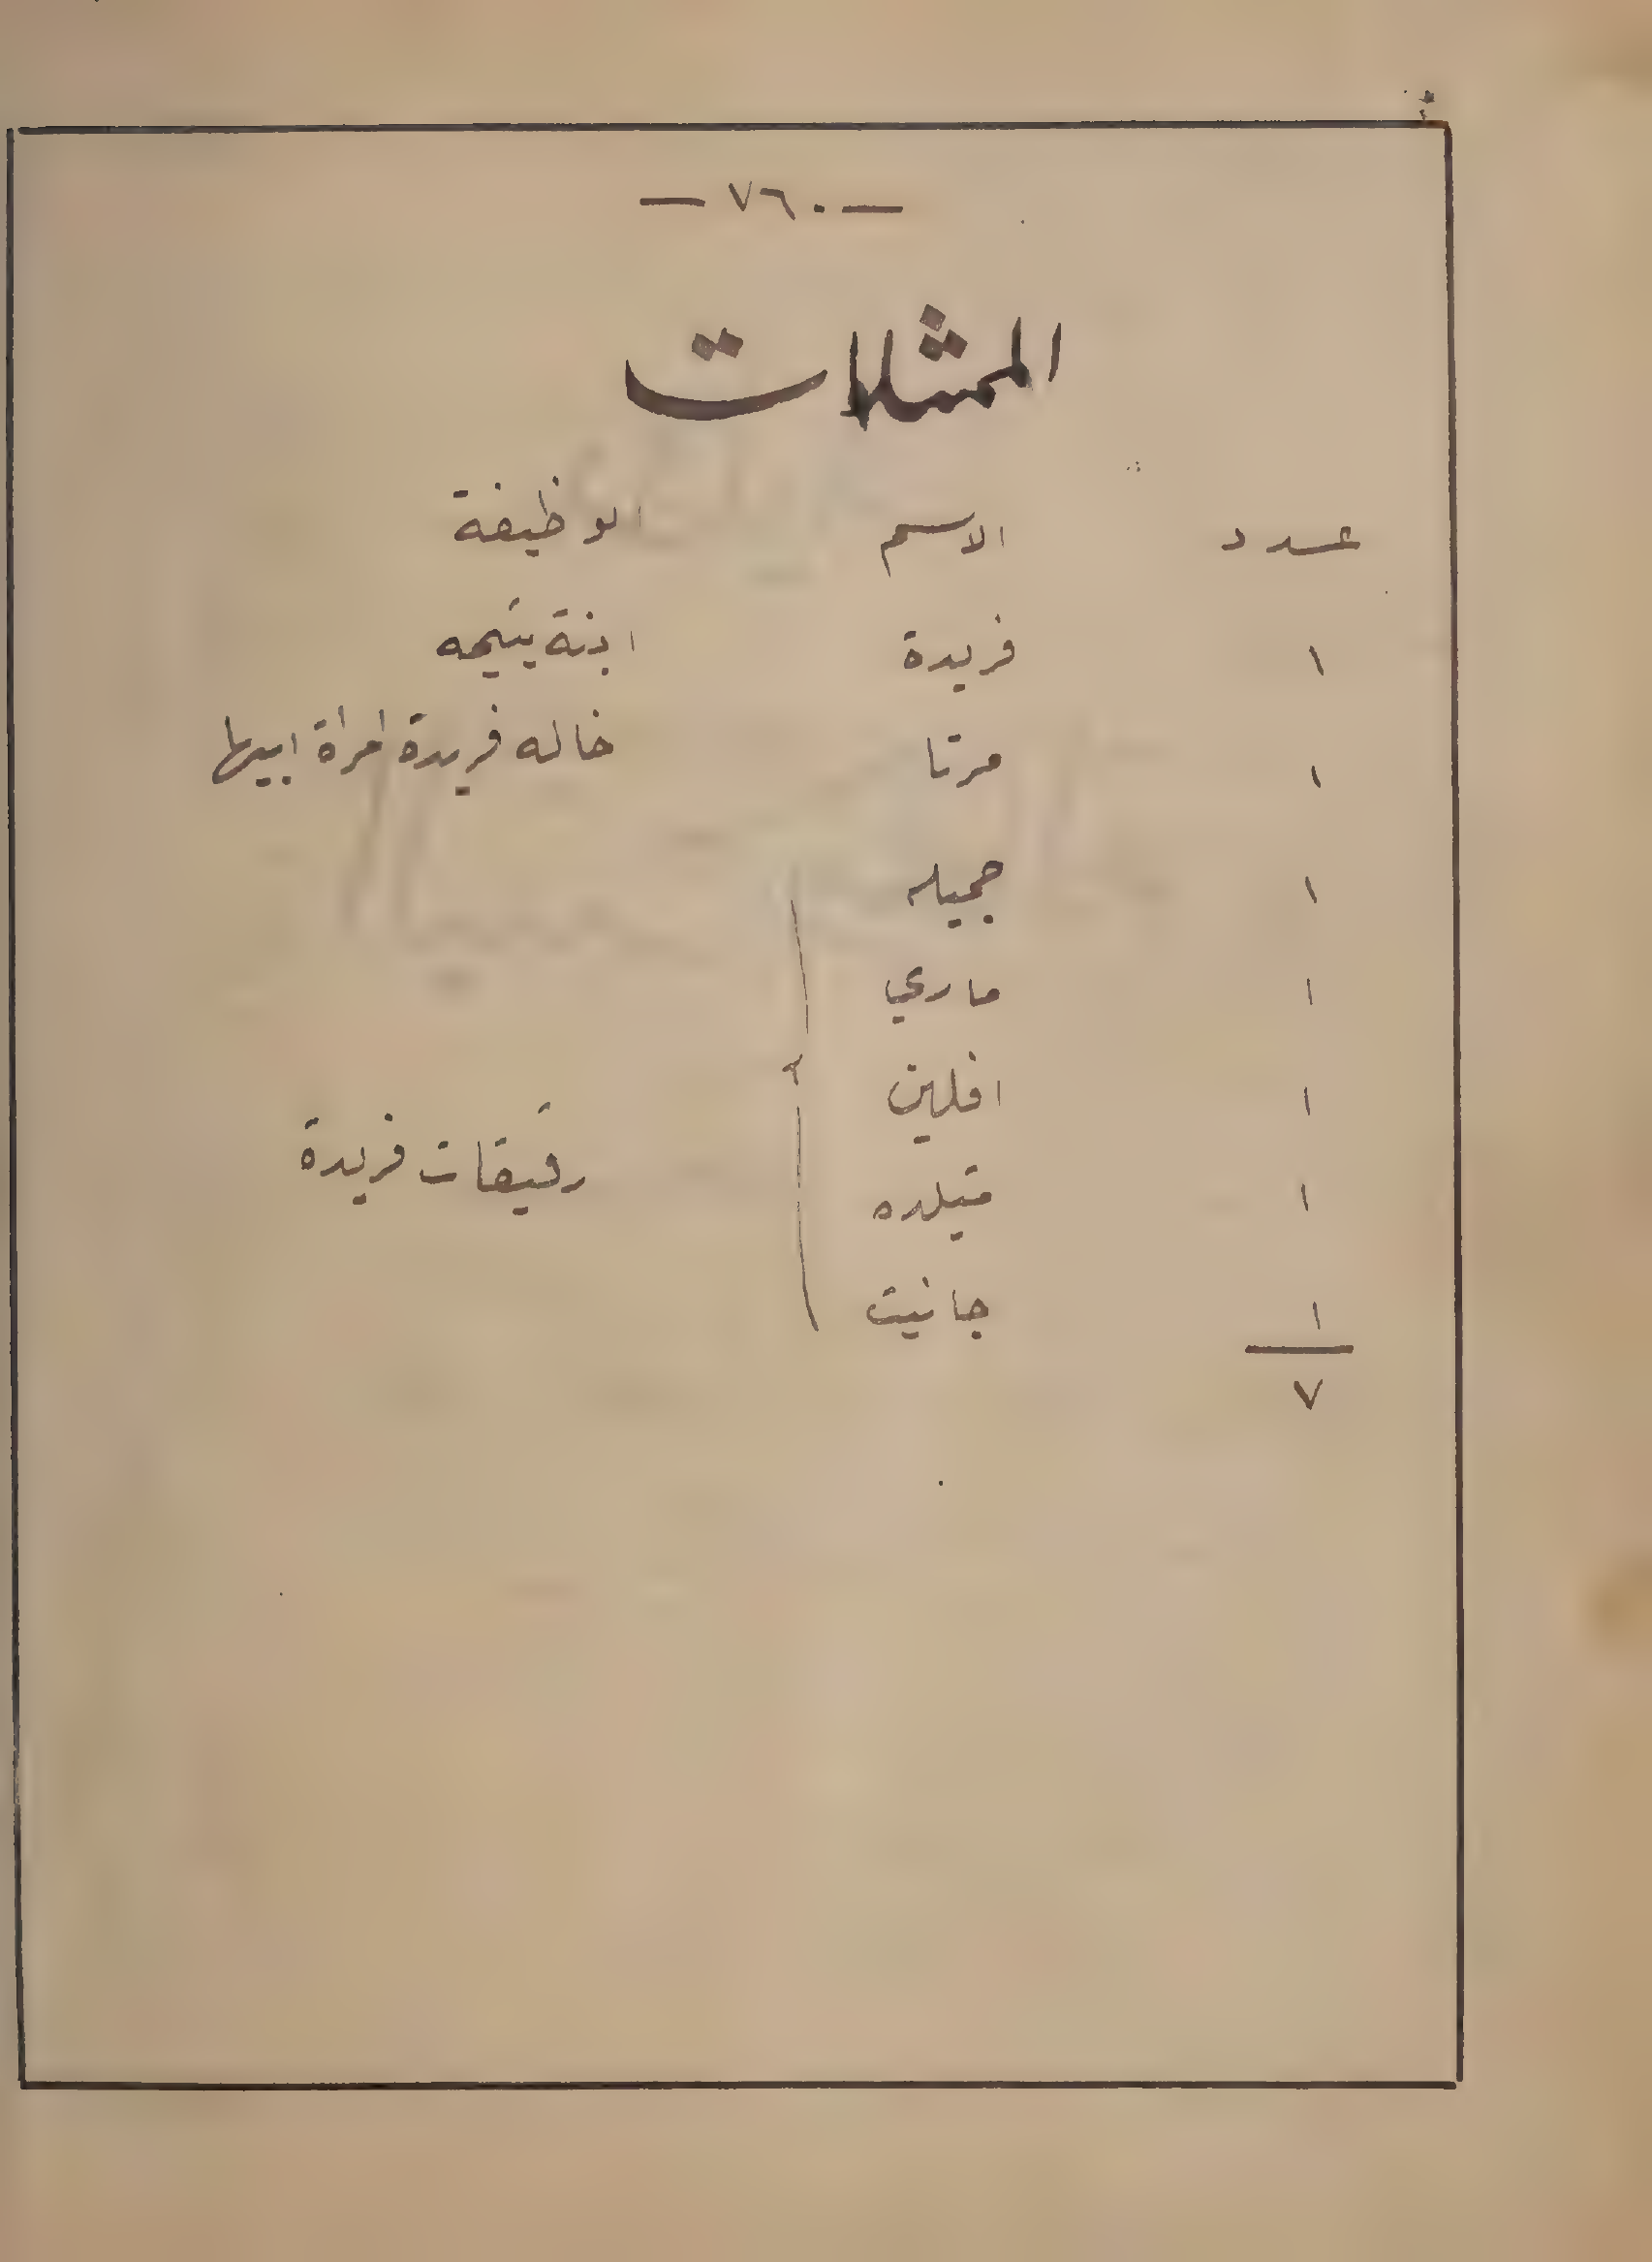 — ٧٦٠ —
الممثلات
عدد الاسم الوظيفة
١ فريدة ابنة يتيمه
١ مرتا خاله فريدة امرأة ابيها
١ جميله
١ ماري
١ افلين
رفيقات فريدة
١ متيلده
١ جانيت
٧